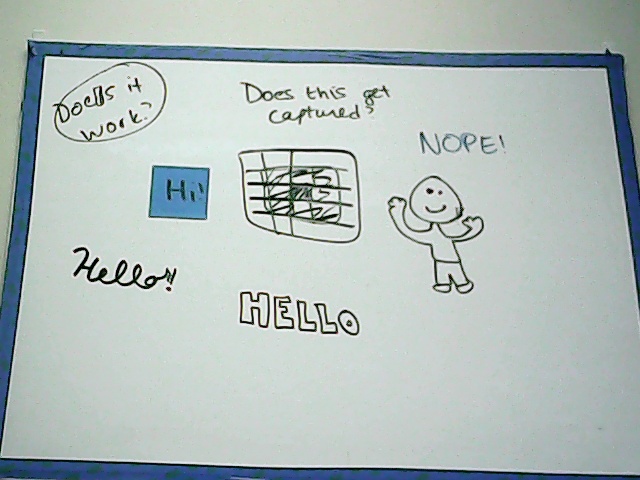 Does it
work?
Does this get
captured?
NOPE!
Hi!
Hello!!
HELLO